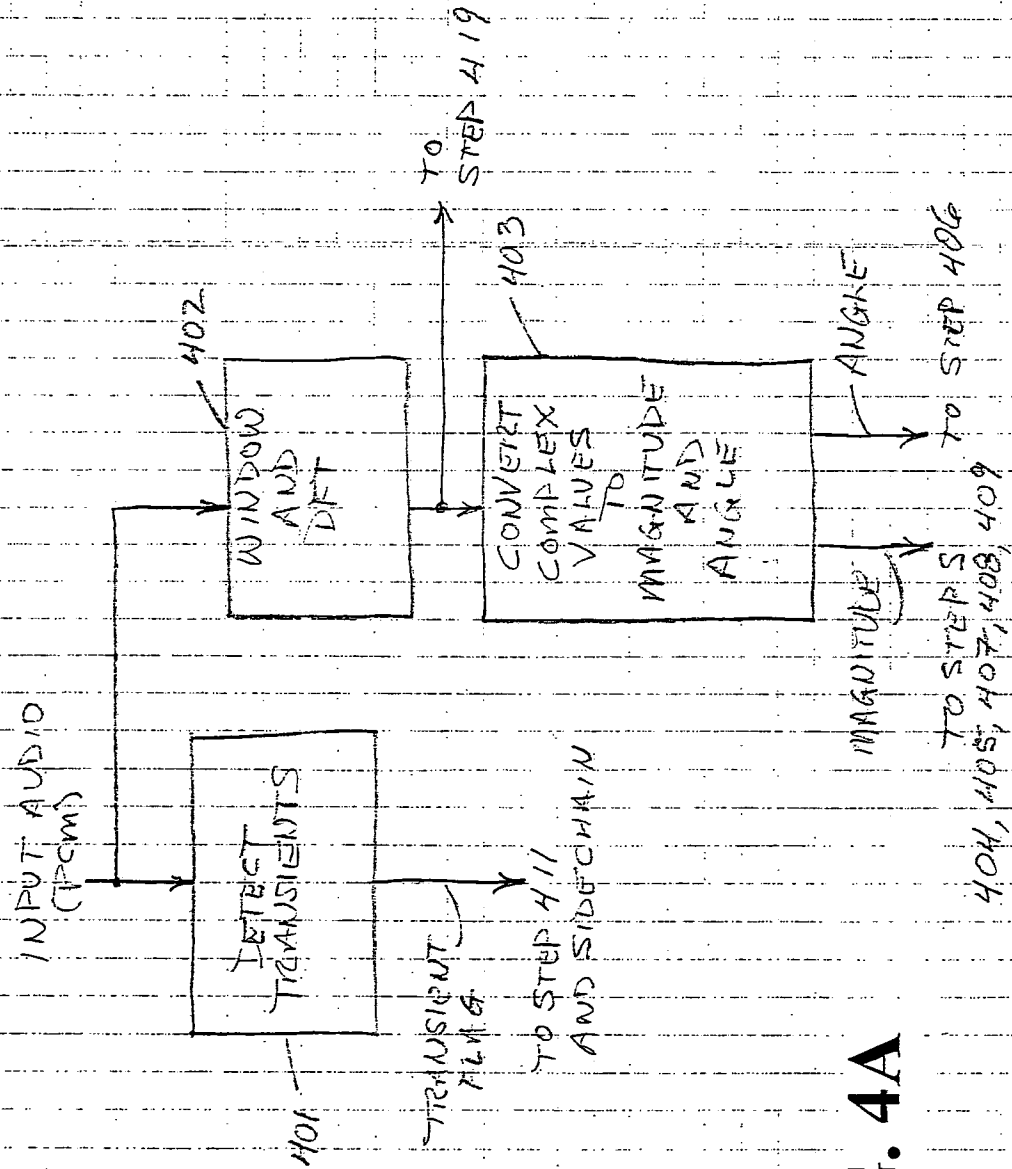 INPUT AUDIO
(PCM)
401
DETECT
TRANSIENTS
TRANSIENT
FLAG
TO STEP 411
AND SIDECHAIN
402
WINDOW
AND
DFT
TO
STEP 419
403
CONVERT
COMPLEX
VALUES
TO
MAGNITUDE
AND
ANGLE
MAGNITUDE
TO STEPS
404, 405, 407, 408, 409
ANGLE
TO STEP 406
. 4A